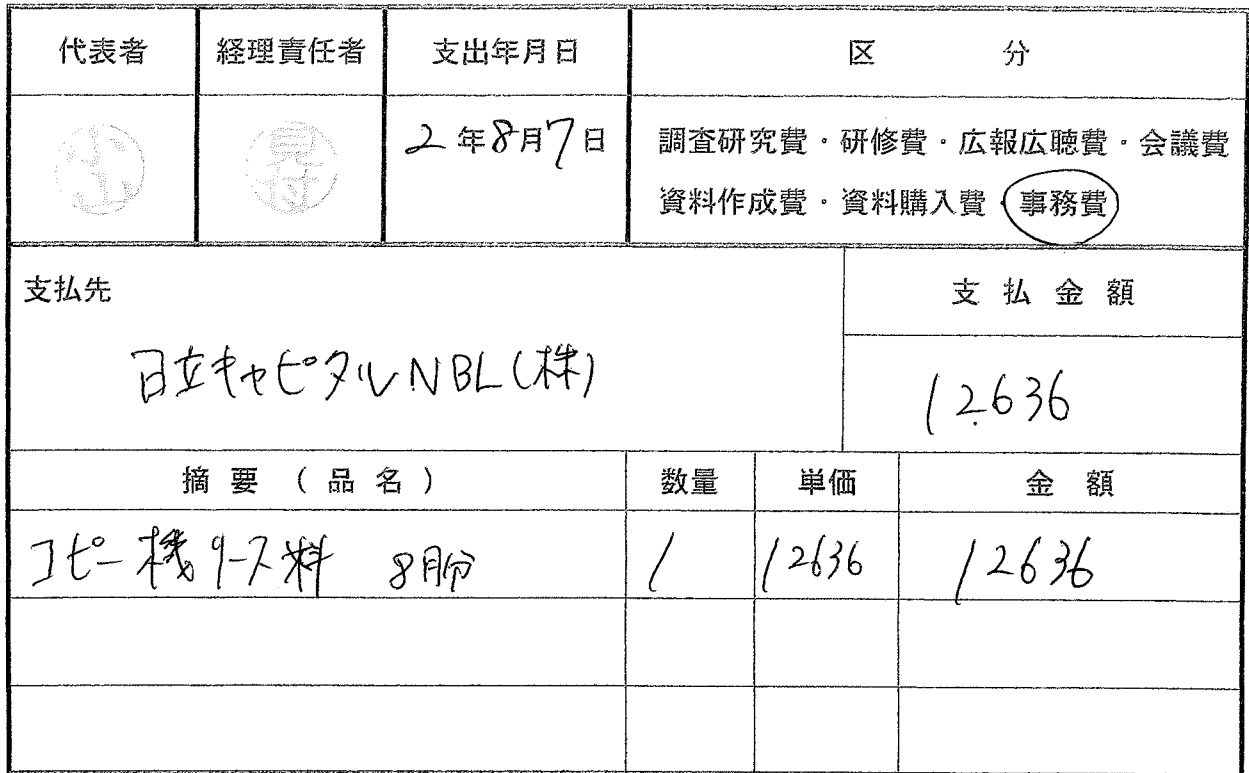 代表者 経理責任者 支出年月日 区 分
小山 見付 2年8月7日 調査研究費・研修費・広報広聴費・会議費
資料作成費・資料購入費・事務費
支払先 支払金額
日立キャピタルNBL(株) 12636
摘要(品名) 数量 単価 金額
コピー機リース料 8月分 1 12636 12636